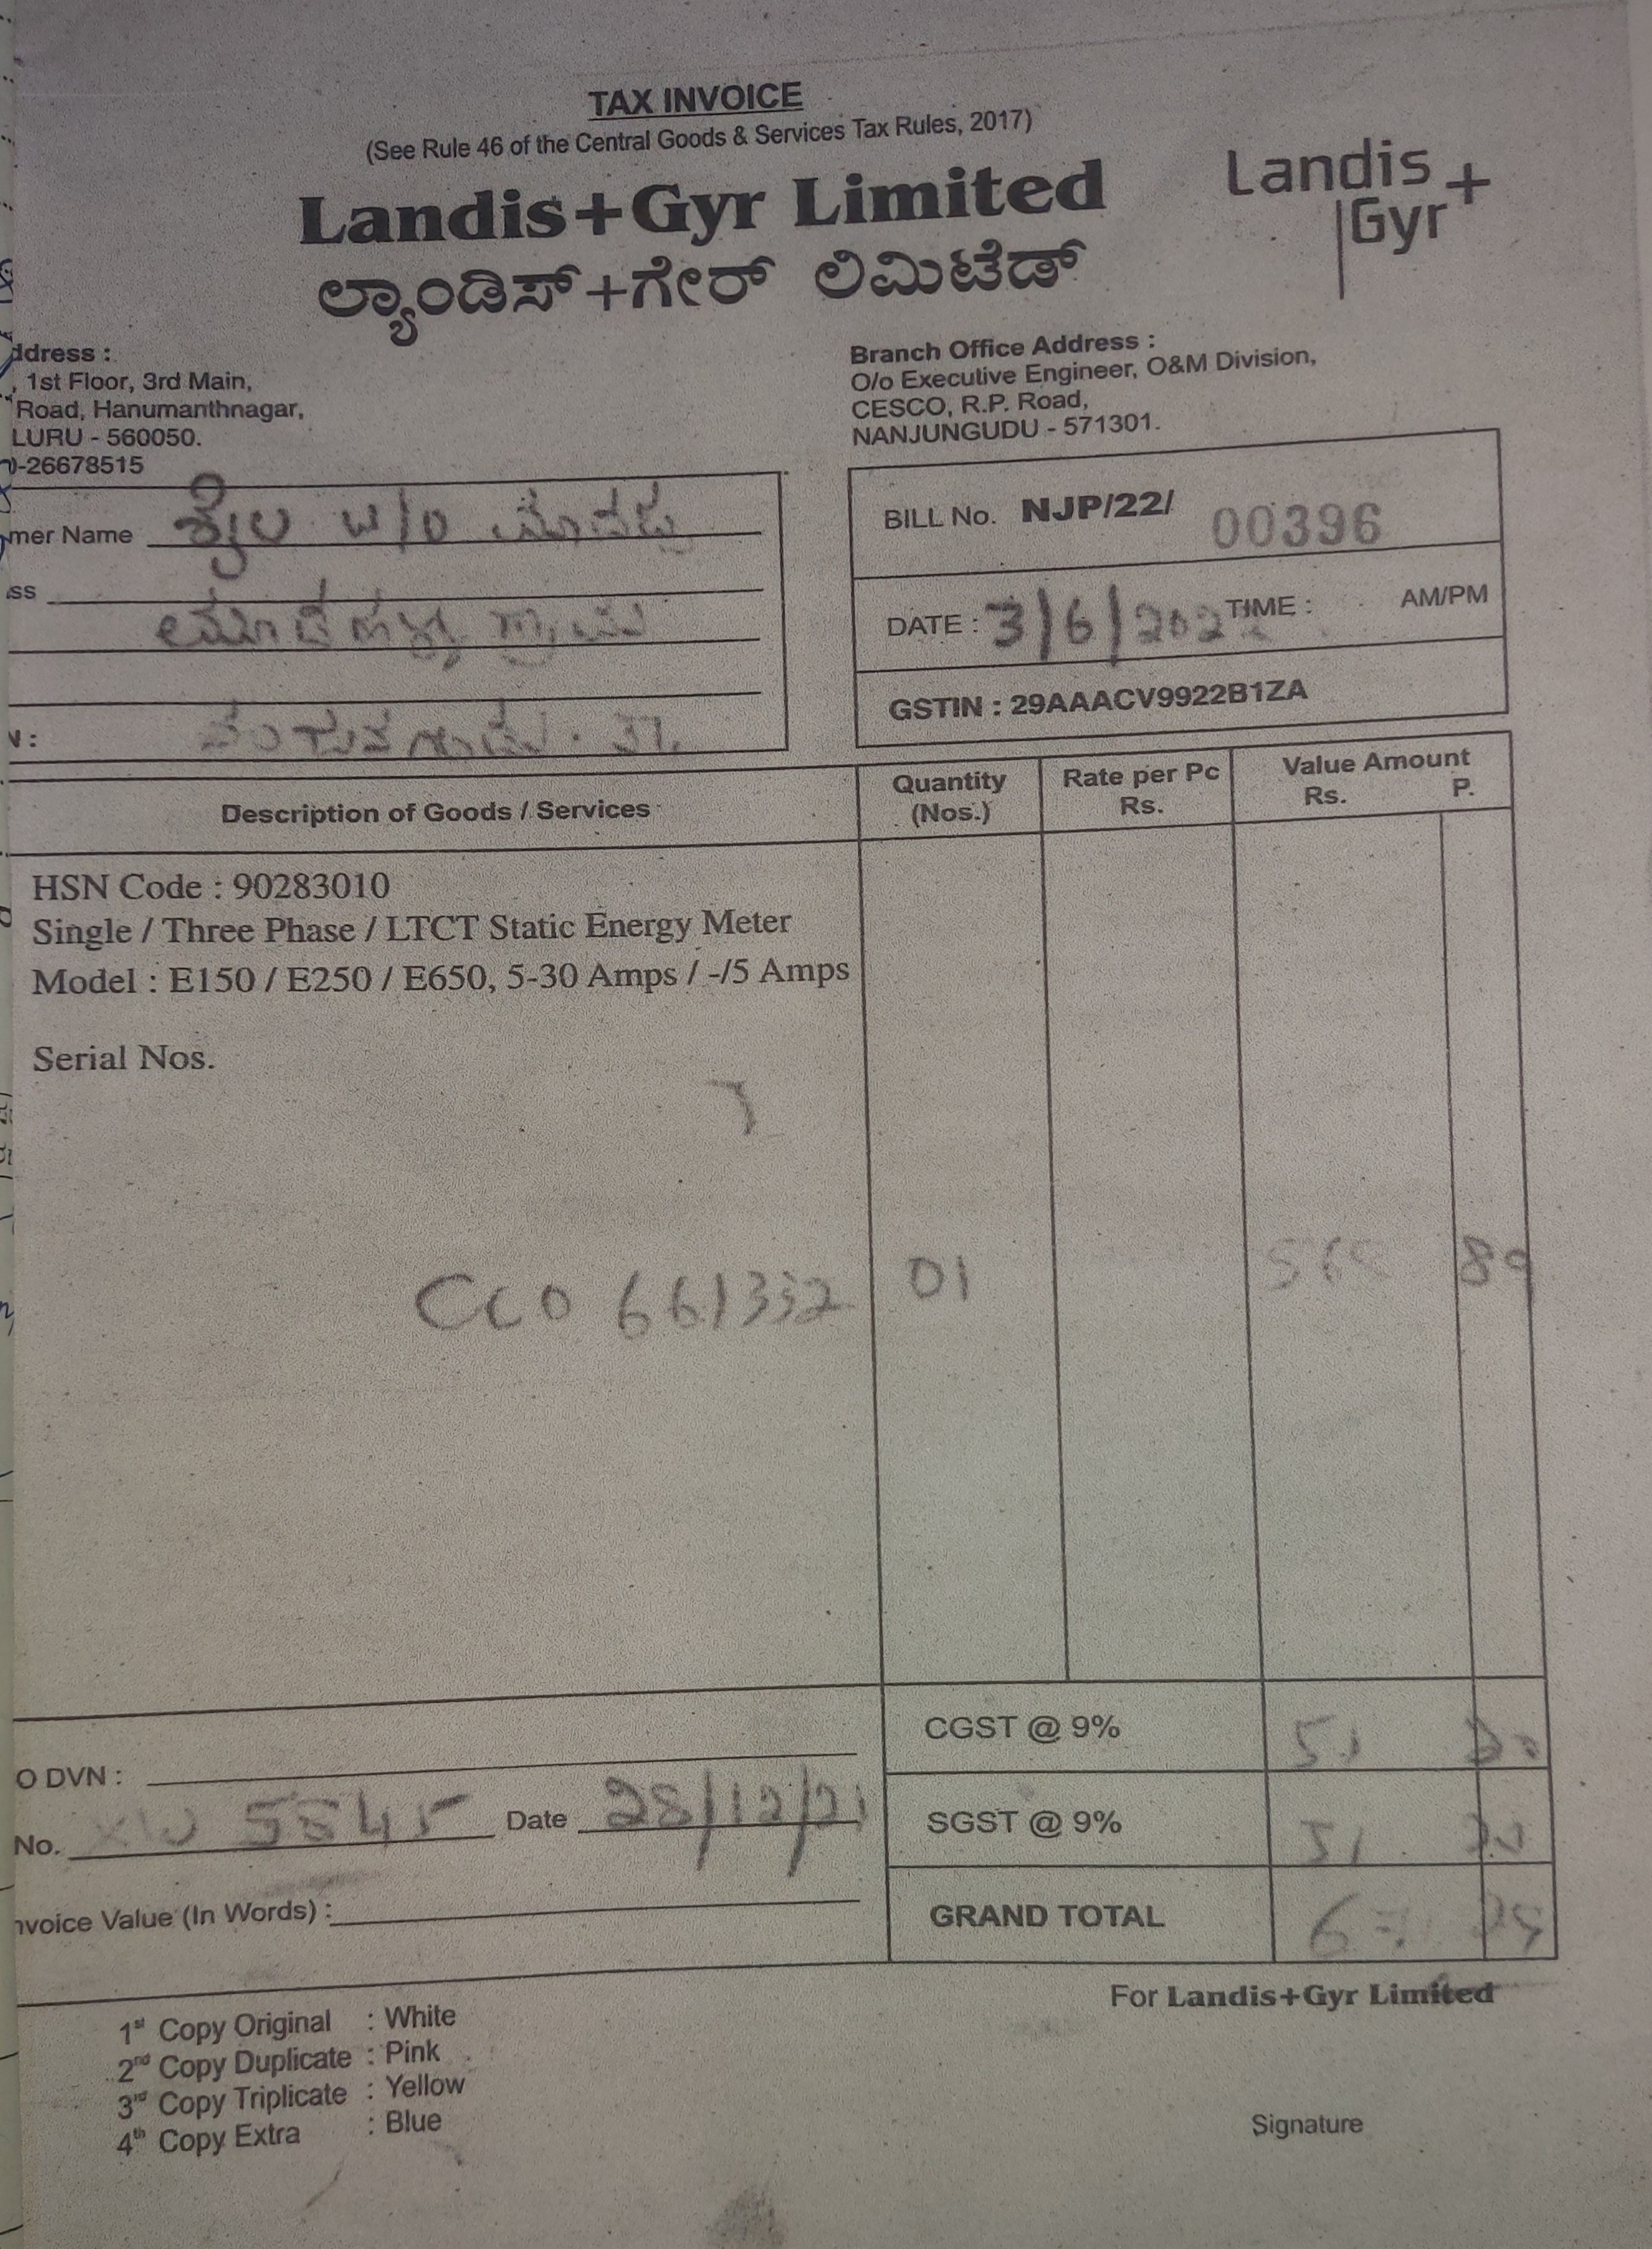 TAX INVOICE
(See Rule 46 of the Central Goods & Services Tax Rules, 2017)
Landis+Gyr Limited
Landis+
Gyr
ಲ್ಯಾಂಡಿಸ್+ಗೇರ್ ಲಿಮಿಟೆಡ್
ddress :
, 1st Floor, 3rd Main,
Road, Hanumanthnagar,
LURU - 560050.
-26678515
Branch Office Address :
O/o Executive Engineer, O&M Division,
CESCO, R.P. Road,
NANJUNGUDU - 571301.
mer Name W/O
ss
N :
BILL No. NJP/22/ 00396
DATE : 3/6/2022 TIME : AM/PM
GSTIN : 29AAACV9922B1ZA
Description of Goods / Services Quantity (Nos.) Rate per Pc Rs. Value Amount Rs. P.
HSN Code : 90283010
Single / Three Phase / LTCT Static Energy Meter
Model : E150 / E250 / E650, 5-30 Amps / -/5 Amps
Serial Nos.
CCO 661332 01 89
CGST @ 9% 51
O DVN :
No. 5545 Date 28/12/21
SGST @ 9% 51
nvoice Value (In Words) :
GRAND TOTAL
For Landis+Gyr Limited
1st Copy Original : White
2nd Copy Duplicate : Pink
3rd Copy Triplicate : Yellow
4th Copy Extra : Blue
Signature